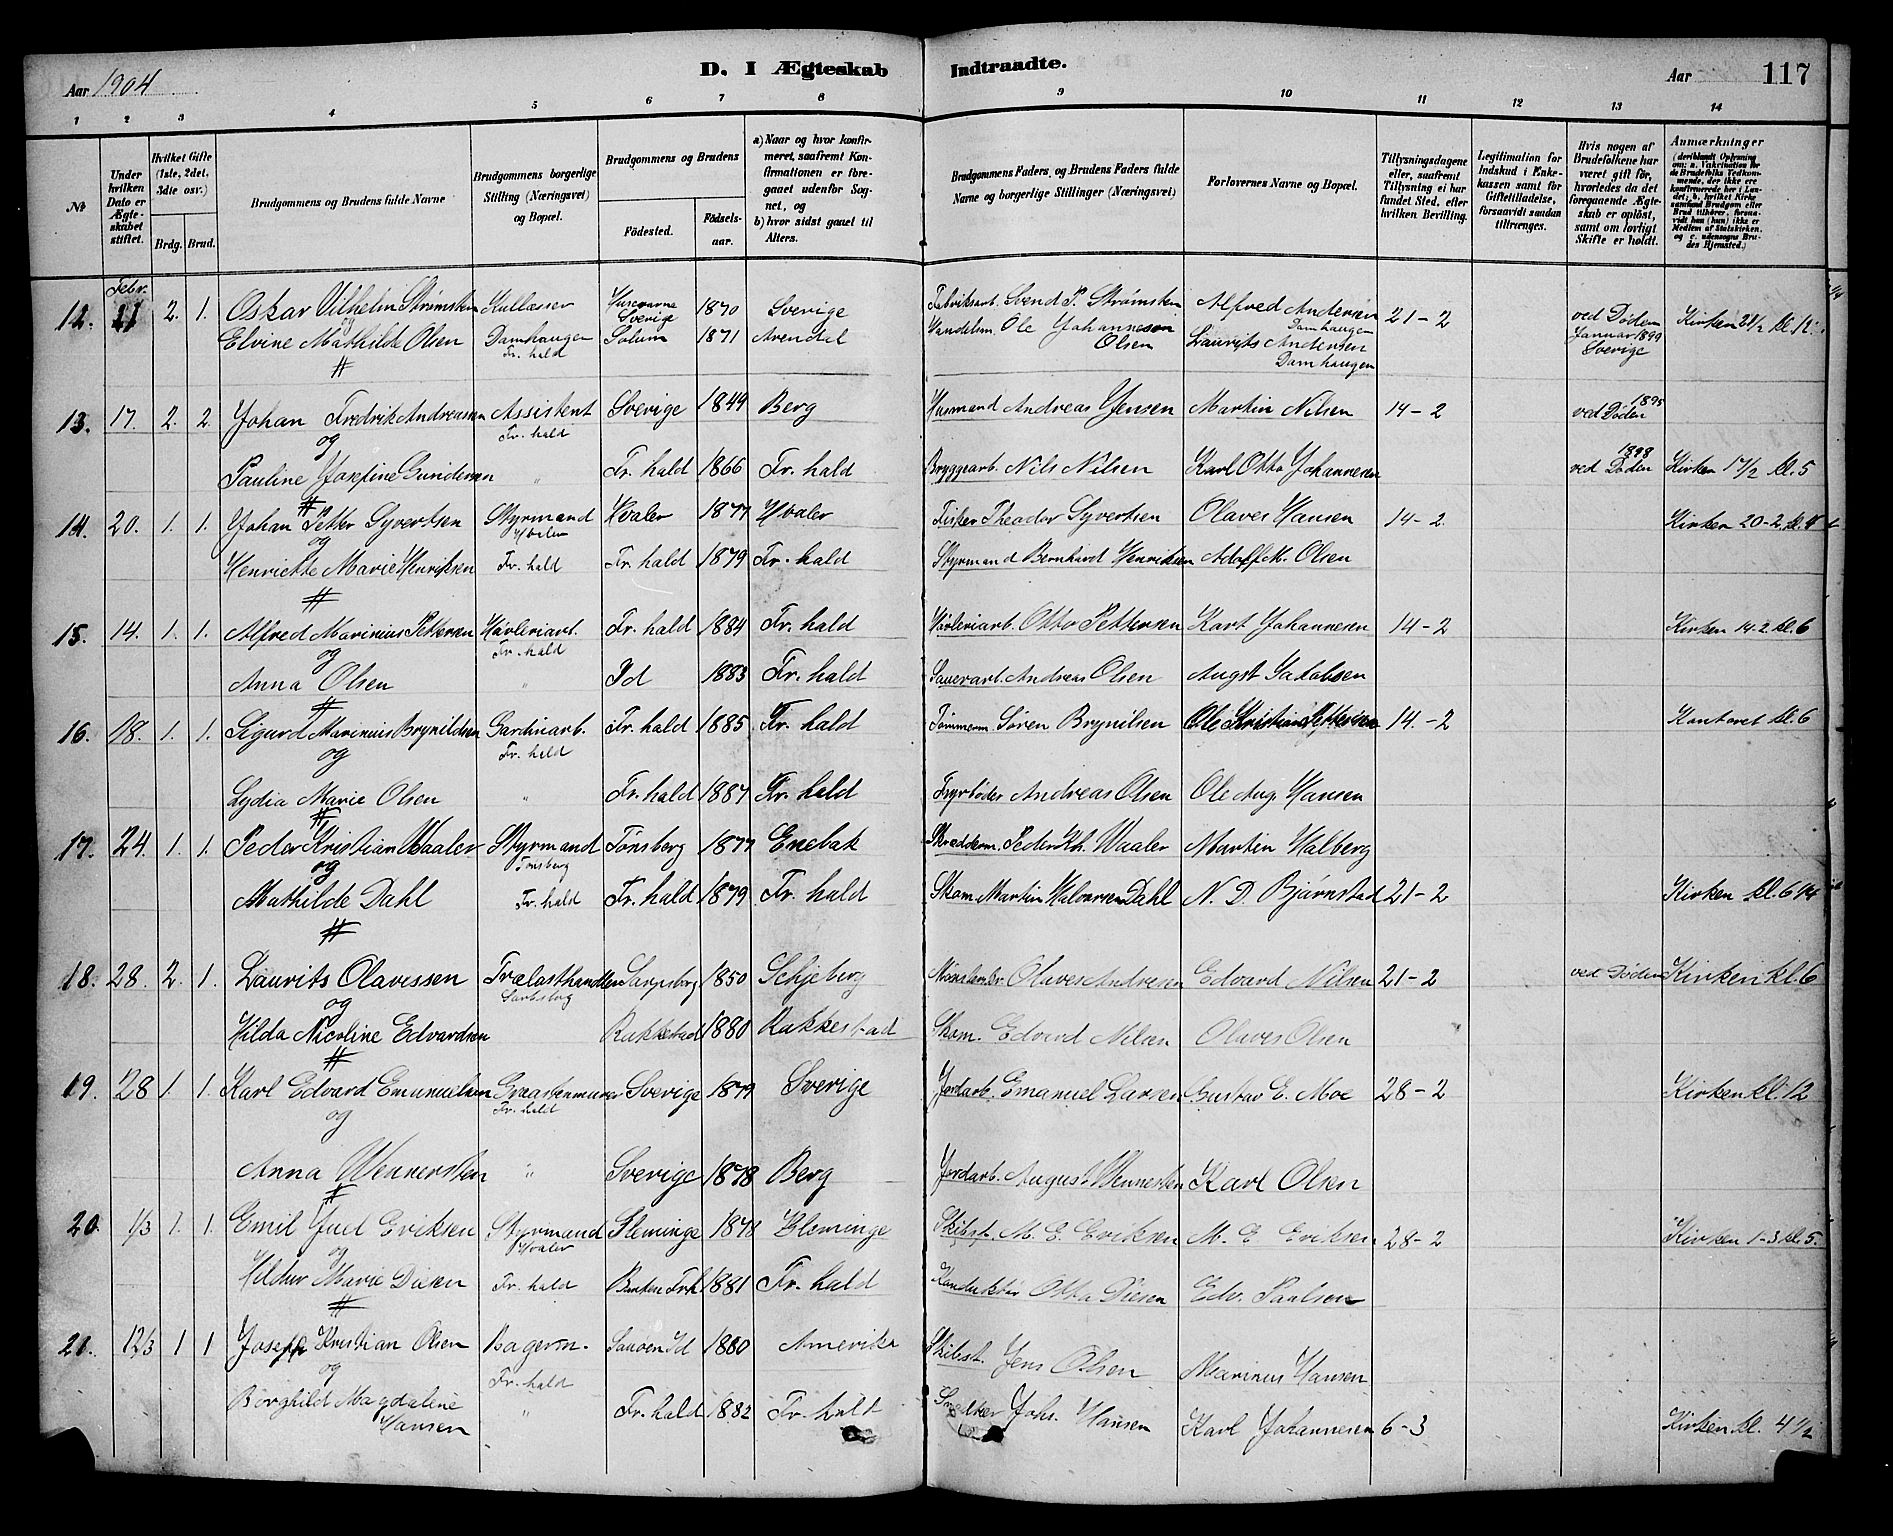 Aar 1904
D. I Ægteskab Indtraadte.
Aar 117
1 2 3 4 5 6 7 8 9 10 11 12 13 14
No
Under hvilken Dato er Ægteskabet stiftet.
Hvilket Gifte (1ste, 2det, 3die osv.)
Brdg. Brud.
Brudgommens og Brudens fulde Navne
Brudgommens borgerlige Stilling (Næringsvei) og Bopæl.
Brudgommens og Brudens
Fødested. Fødselsaar.
a) Naar og hvor konfirmeret, saafremt Konfirmationen er foregaaet udenfor Sognet, og
b) hvor sidst gaaet til Alters.
Brudgommens Faders, og Brudens Faders fulde Navne og borgerlige Stillinger (Næringsvei)
Forlovernes Navne og Bopæl.
Tillysningsdagene eller, saafremt Tillysning ei har fundet Sted, efter hvilken Bevilling.
Legitimation for Indskud i Enkekassen samt for Giftetilladelse, forsaavidt saadan tiltrænges.
Hvis nogen af Brudefolkene har været gift før, hvorledes da det foregaaende Ægteskab er opløst, samt om lovligt Skifte er holdt.
Anmærkninger
(deriblandt Oplysning om: a. Vakcination for de Brudefolks Vedkommende, der ikke ere konfirmerede her i Landet; b. hvilket Kirkesamfund Brudgom eller Brud tilhører, forsaavidt han (hun) ikke er Medlem af Statskirken, og c. udensogns Brudes Hjemsted.)
Febr.
12. 21 2. 1. Oskar Vilhelm Strømsten Sverige 1870 Sverige Fabriksarb. Svend P. Strømsten Alfred Andersen Damhaugen 21-2 ved Døden Januar 1899 Sverige Kirken 21/2
og
Elvine Mathilde Olsen Damhaugen Fr. hald Solum 1871 Arendal Handelm. Ole Johannesen Olsen Laurits Andersen Damhaugen
13. 17. 2. 2. Johan Fredrik Andreassen Assistent Fr. hald Sverige 1849 Berg Husmand Andreas Jensen Martin Nilsen 14-2 ved Døden 1895
og
Pauline Josefine Gundersen " Fr. hald 1866 Fr. hald Bryggearb. Nils Nilsen Karl Otto Johannesen ved Døden 1898 Kirken 17/2 kl. 5
14. 20. 1. 1. Johan Petter Syvertsen Styrmand Hvaler Hvaler 1877 Hvaler Fisker Theodor Syvertsen Olaves Hansen 14-2. Kirken 20-2, kl.
og
Henriette Marie Henriksen Fr. hald Fr. hald 1879 Fr. hald Styrmand Bernhard Henriksen Adolf M. Olsen
15. 14. 1. 1. Alfred Marinius Pettersen Høvleriarb. Fr. hald Fr. hald 1884 Fr. hald Høvleriarb. Otto Pettersen Karl Johannesen 14-2 Kirken 14-2 kl. 6
og
Anna Olsen " Id 1883 Fr. hald Andreas Olsen August Jakobsen
16. 18. 1. 1. Sigurd Marinius Brynildsen Gardinarb. Fr. hald Fr. hald 1885 Fr. hald Tømmerm. Søren Brynilsen Ole Kristian Pettersen 14-2 Kontoret kl. 6
og
Lydia Marie Olsen " Fr. hald 1887 Fr. hald Fyrbøder Andreas Olsen Ole Aug. Hansen
17. 24. 1. 1. Peder Kristian Waaler Styrmand Tønsberg Tønsberg 1877 Enebak Skrædderm. Peder Kh. Waaler Martin Halberg
og
Mathilde Dahl Fr. hald Fr. hald 1879 Fr. hald Skom. Martin Halvorsen Dahl N. D. Bjørnstad 21-2 Kirken kl. 6
18. 28. 2. 1. Laurits Olavessen Trælasthandler Sarpsborg Sarpsborg 1850 Skjeberg Olaves Andresen Edvard Nilsen 21-2 ved Døden Kirken kl. 6
og
Hilda Nicoline Edvardsen Rakkestad 1880 Rakkestad Skom. Edvard Nilsen Olaves Olsen
19. 28 1. 1. Karl Edvard Emanuelsen Fr. hald Sverige 1879 Sverige Jordarb. Emanuel Larsen Gustav E. Moe 28-2 Kirken kl. 12
og
Anna Wennersten " Sverige 1878 Berg Jordarb. August Wennersten Karl Olsen
20. 1/3 1. 1. Emil Juel Eriksen Styrmand Hvaler Fleminge 1878 Fleminge Skibst. M. E. Eriksen M. E Eriksen 28-2 Kirken 1-3 kl. 5.
og
Hildur Marie Diesen Fr. hald 1881 Fr. hald Konduktør Otto Diesen Edv. Paulsen
21. 12/3 1 1 Joseph Kristian Olsen Bagerm. Fr. hald Id 1880 Amerika Skibst. Jens Olsen Marinius Hansen
og
Borghild Magdalene Hansen " Fr. hald 1882 Fr. hald Johs. Hansen Karl Johannesen 6-3 Kirken kl. 4 1/2